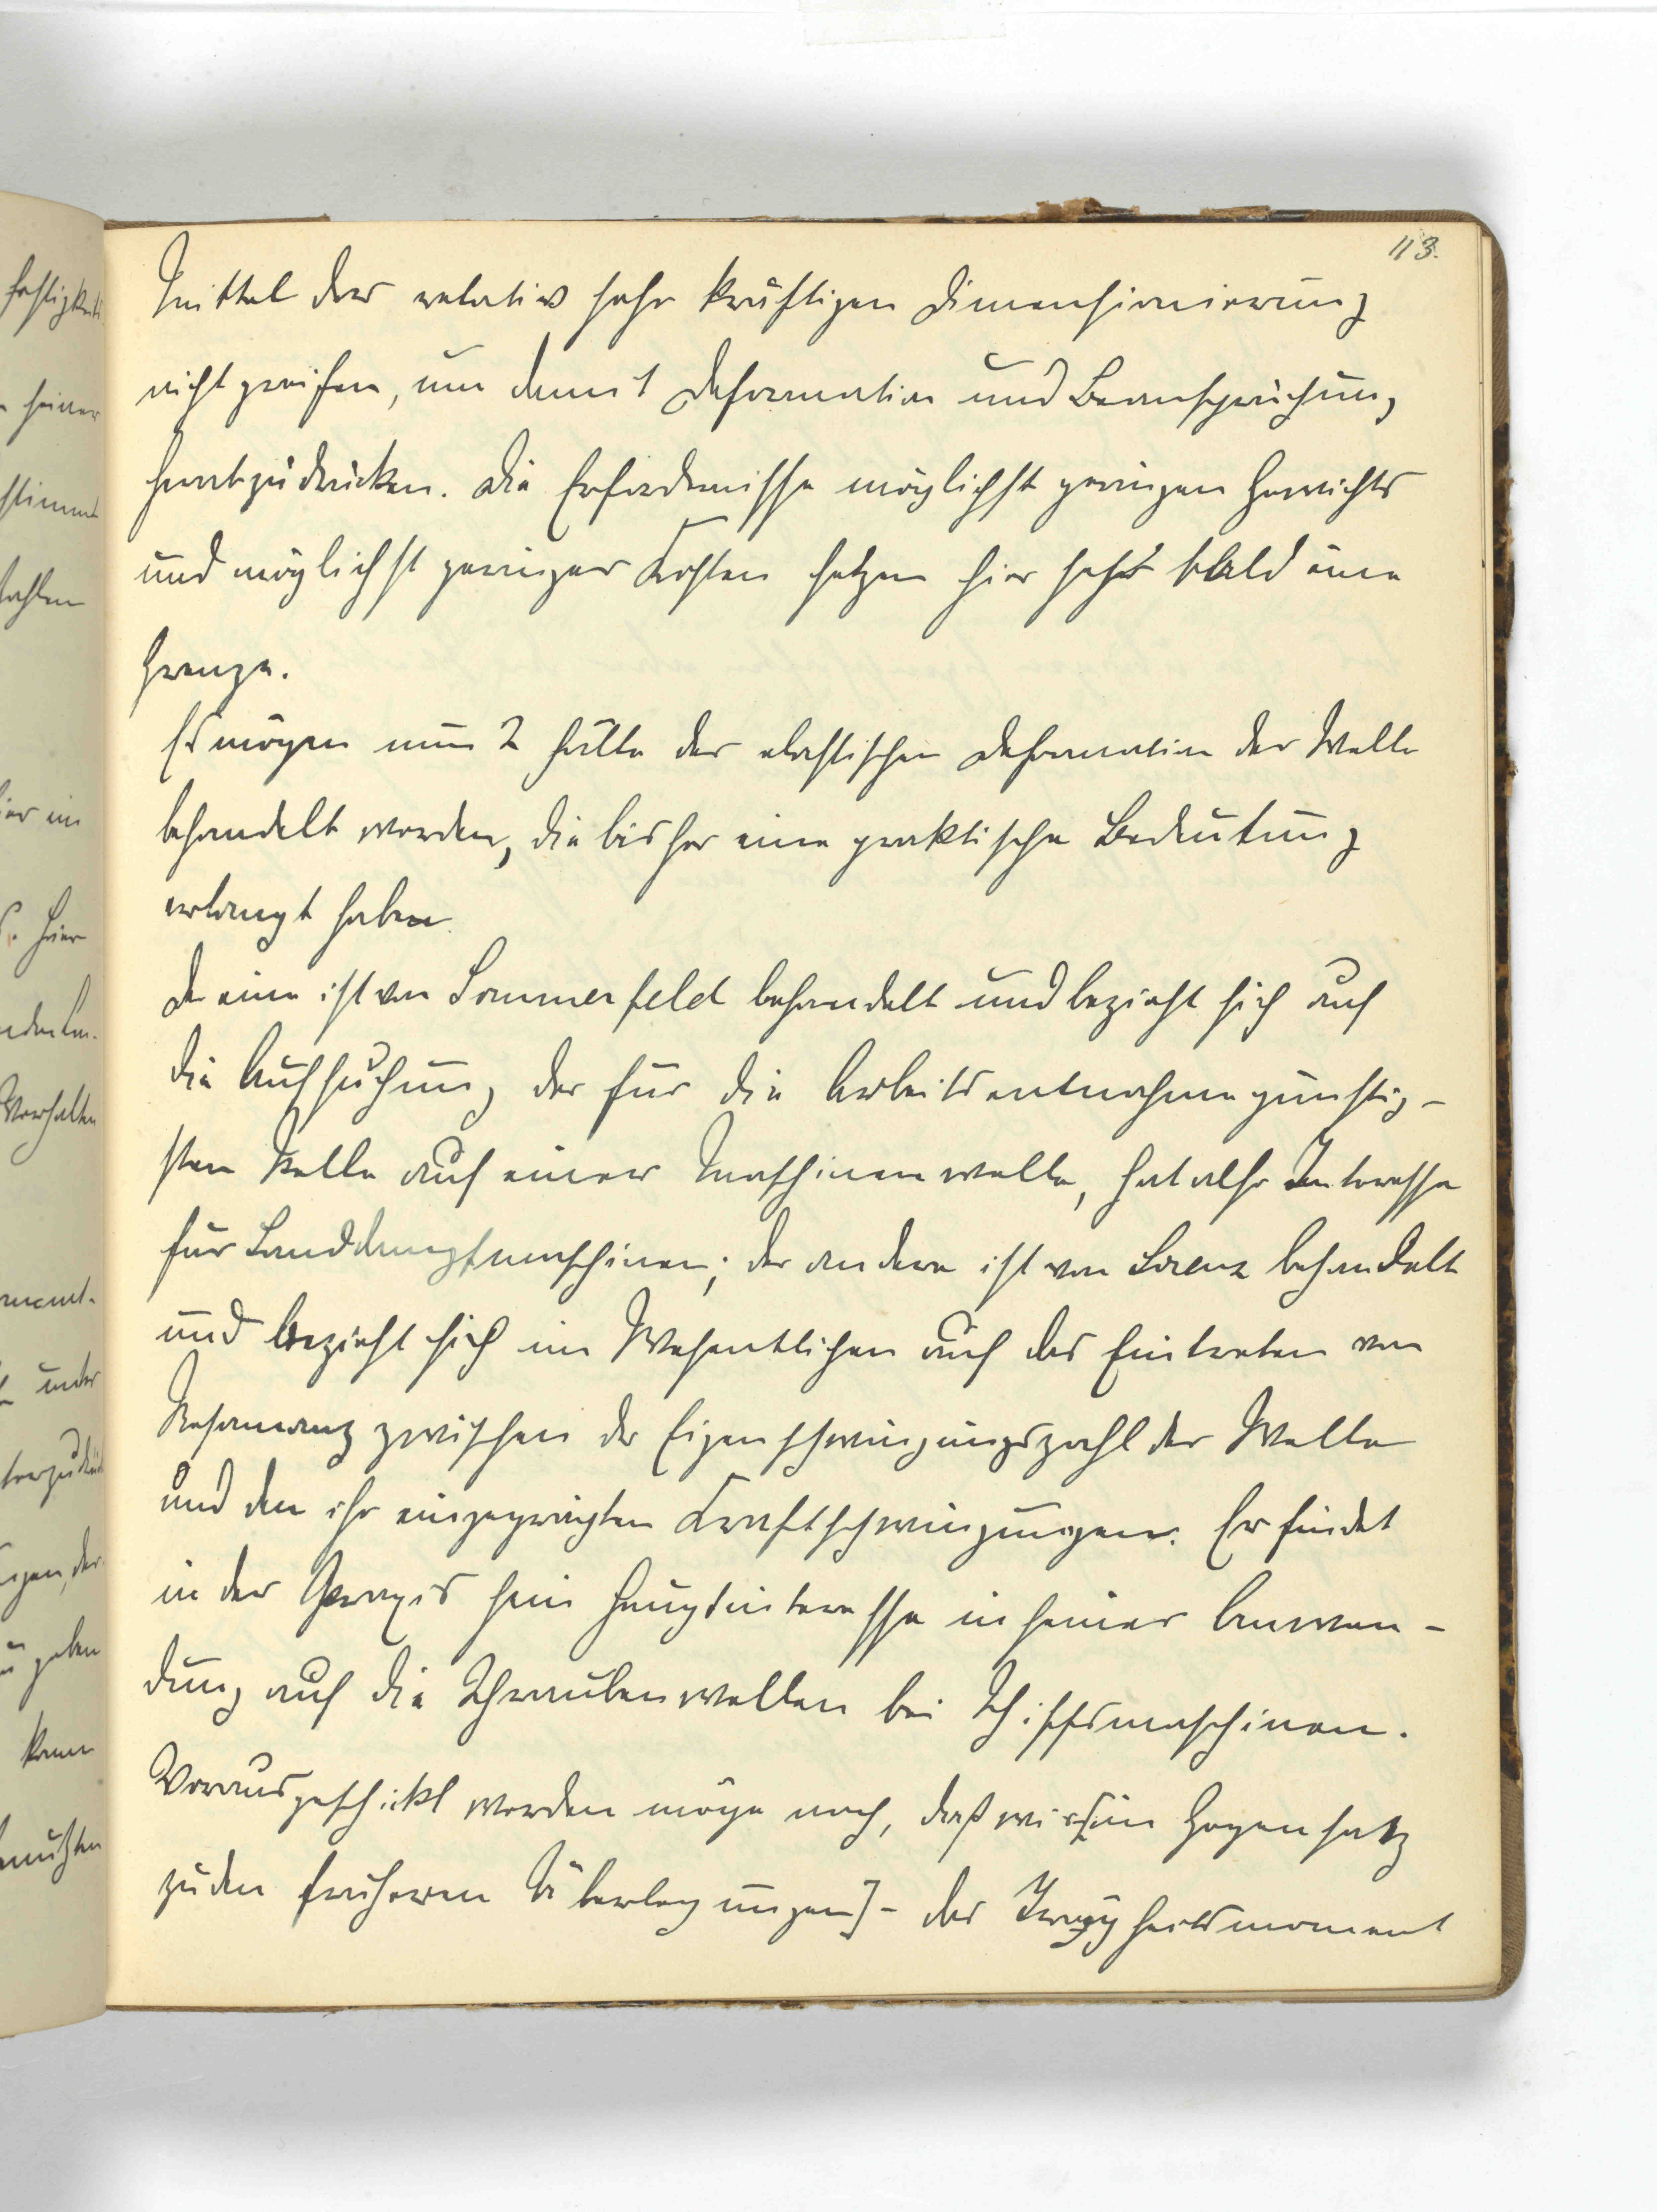 113.
Mittel der relativ sehr kräftigen Dimensionierung
nicht greifen, um damit Deformation und Beanspruchung
herabzudrücken. Die Erfordernisse möglichst geringen Gewichts
und möglichst geringer Kosten setzen hier sehr bald eine
Grenze.
Es mögen nun 2 Fälle der elastischen Deformation der Welle
behandelt werden, die bisher eine praktische Bedeutung
erlangt haben.
Der eine ist von Sommerfeld behandelt und bezieht sich auf
die Aufsuchung der für die Arbeitsentnahme günstig-
sten Stelle auf einer Maschinenwelle, hat also Interesse
für Landdampfmaschinen; der andere ist von Lorenz behandelt
und bezieht sich im Wesentlichen auf das Eintreten von
Resonanz zwischen der Eigenschwingungszahl der Welle
und den ihr eingeprägten Kraftschwingungen. Er findet
in der Praxis sein Hauptinteresse in seiner Anwen-
dung auf die Schraubenwellen bei Schiffsmaschinen.
Vorausgeschickt werden möge noch, daß wir [im Gegensatz
zu den früheren Überlegungen] - das Trägheitsmoment
festigkeits
seiner
stimmt
Hier
Verhalten
unter
geben
kann